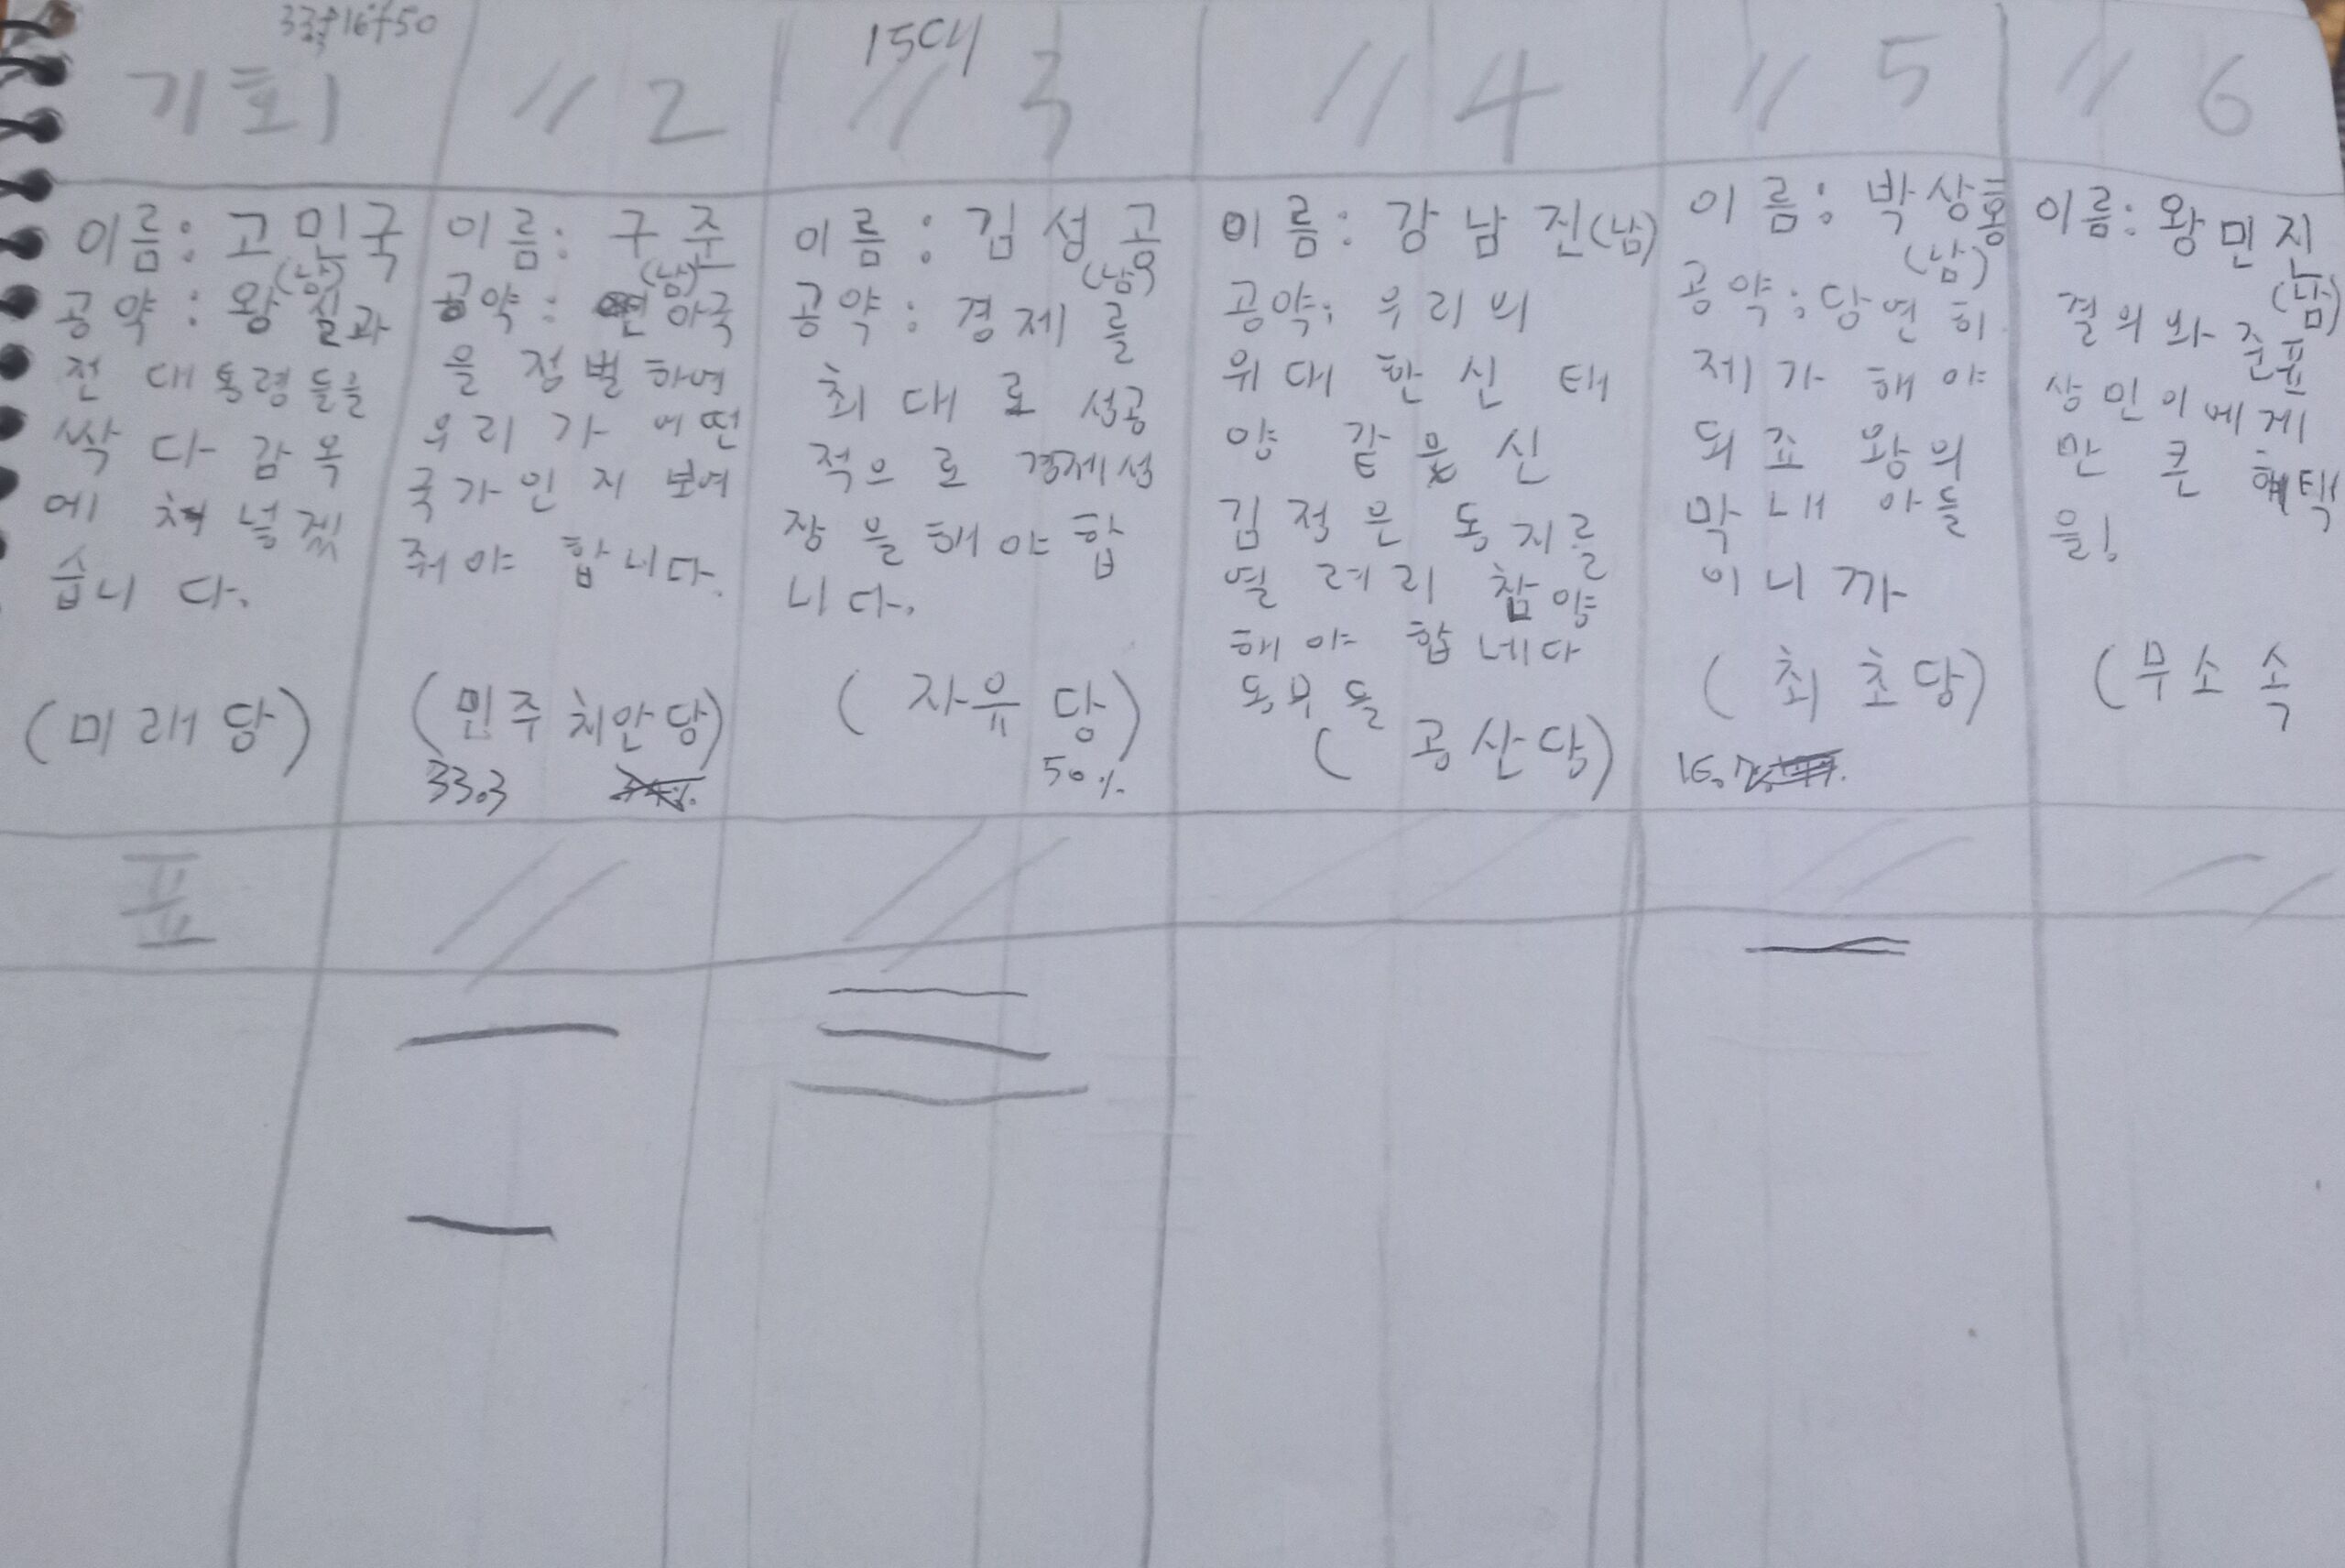 33.3+16.7+50
15대
기호1
// 2
// 3
// 4
// 5
// 6
이름: 고민국
(남)
공약: 왕실과
전 대통령들을
싹 다 감옥
에 쳐 넣겠
습니다.
(미래당)
이름: 구주
(남)
공약: 아국
을 점벌하여
우리가 어떤
국가인지 보여
줘야 합니다.
(민주치안당)
33.3
이름: 김성공
(남)
공약: 경제를
최대로 성공
적으로 경제성
장을 해야 합
니다.
(자유당)
50%
이름: 강남진(남)
공약: 우리의
위대한 신 태
양 같은 신
김적은 동지를
열렬리 참양
해야 합네다
동무들
(공산당)
이름: 박상홍
(남)
공약: 당연히
제가 해야
되죠 왕의
막내 아들
이니까
(최초당)
16.7%
이름: 왕민진
(남)
결의와 준표
상민이에게
만 큰 혜택
을!
(무소속
표
//
//
//
//
//